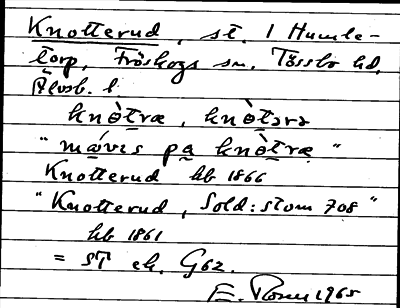 Knotterud, st. 1 Humle-
torp, Fröskogs sn, Tössbo hd,
Älvsb. l.
knòtræ, knòtərə
"mávis pa knòtræ"
Knotterud hb 1866
"Knotterud, Sold: stom 708"
hb 1861
= ST ek. G62.
E. Rosen 1965